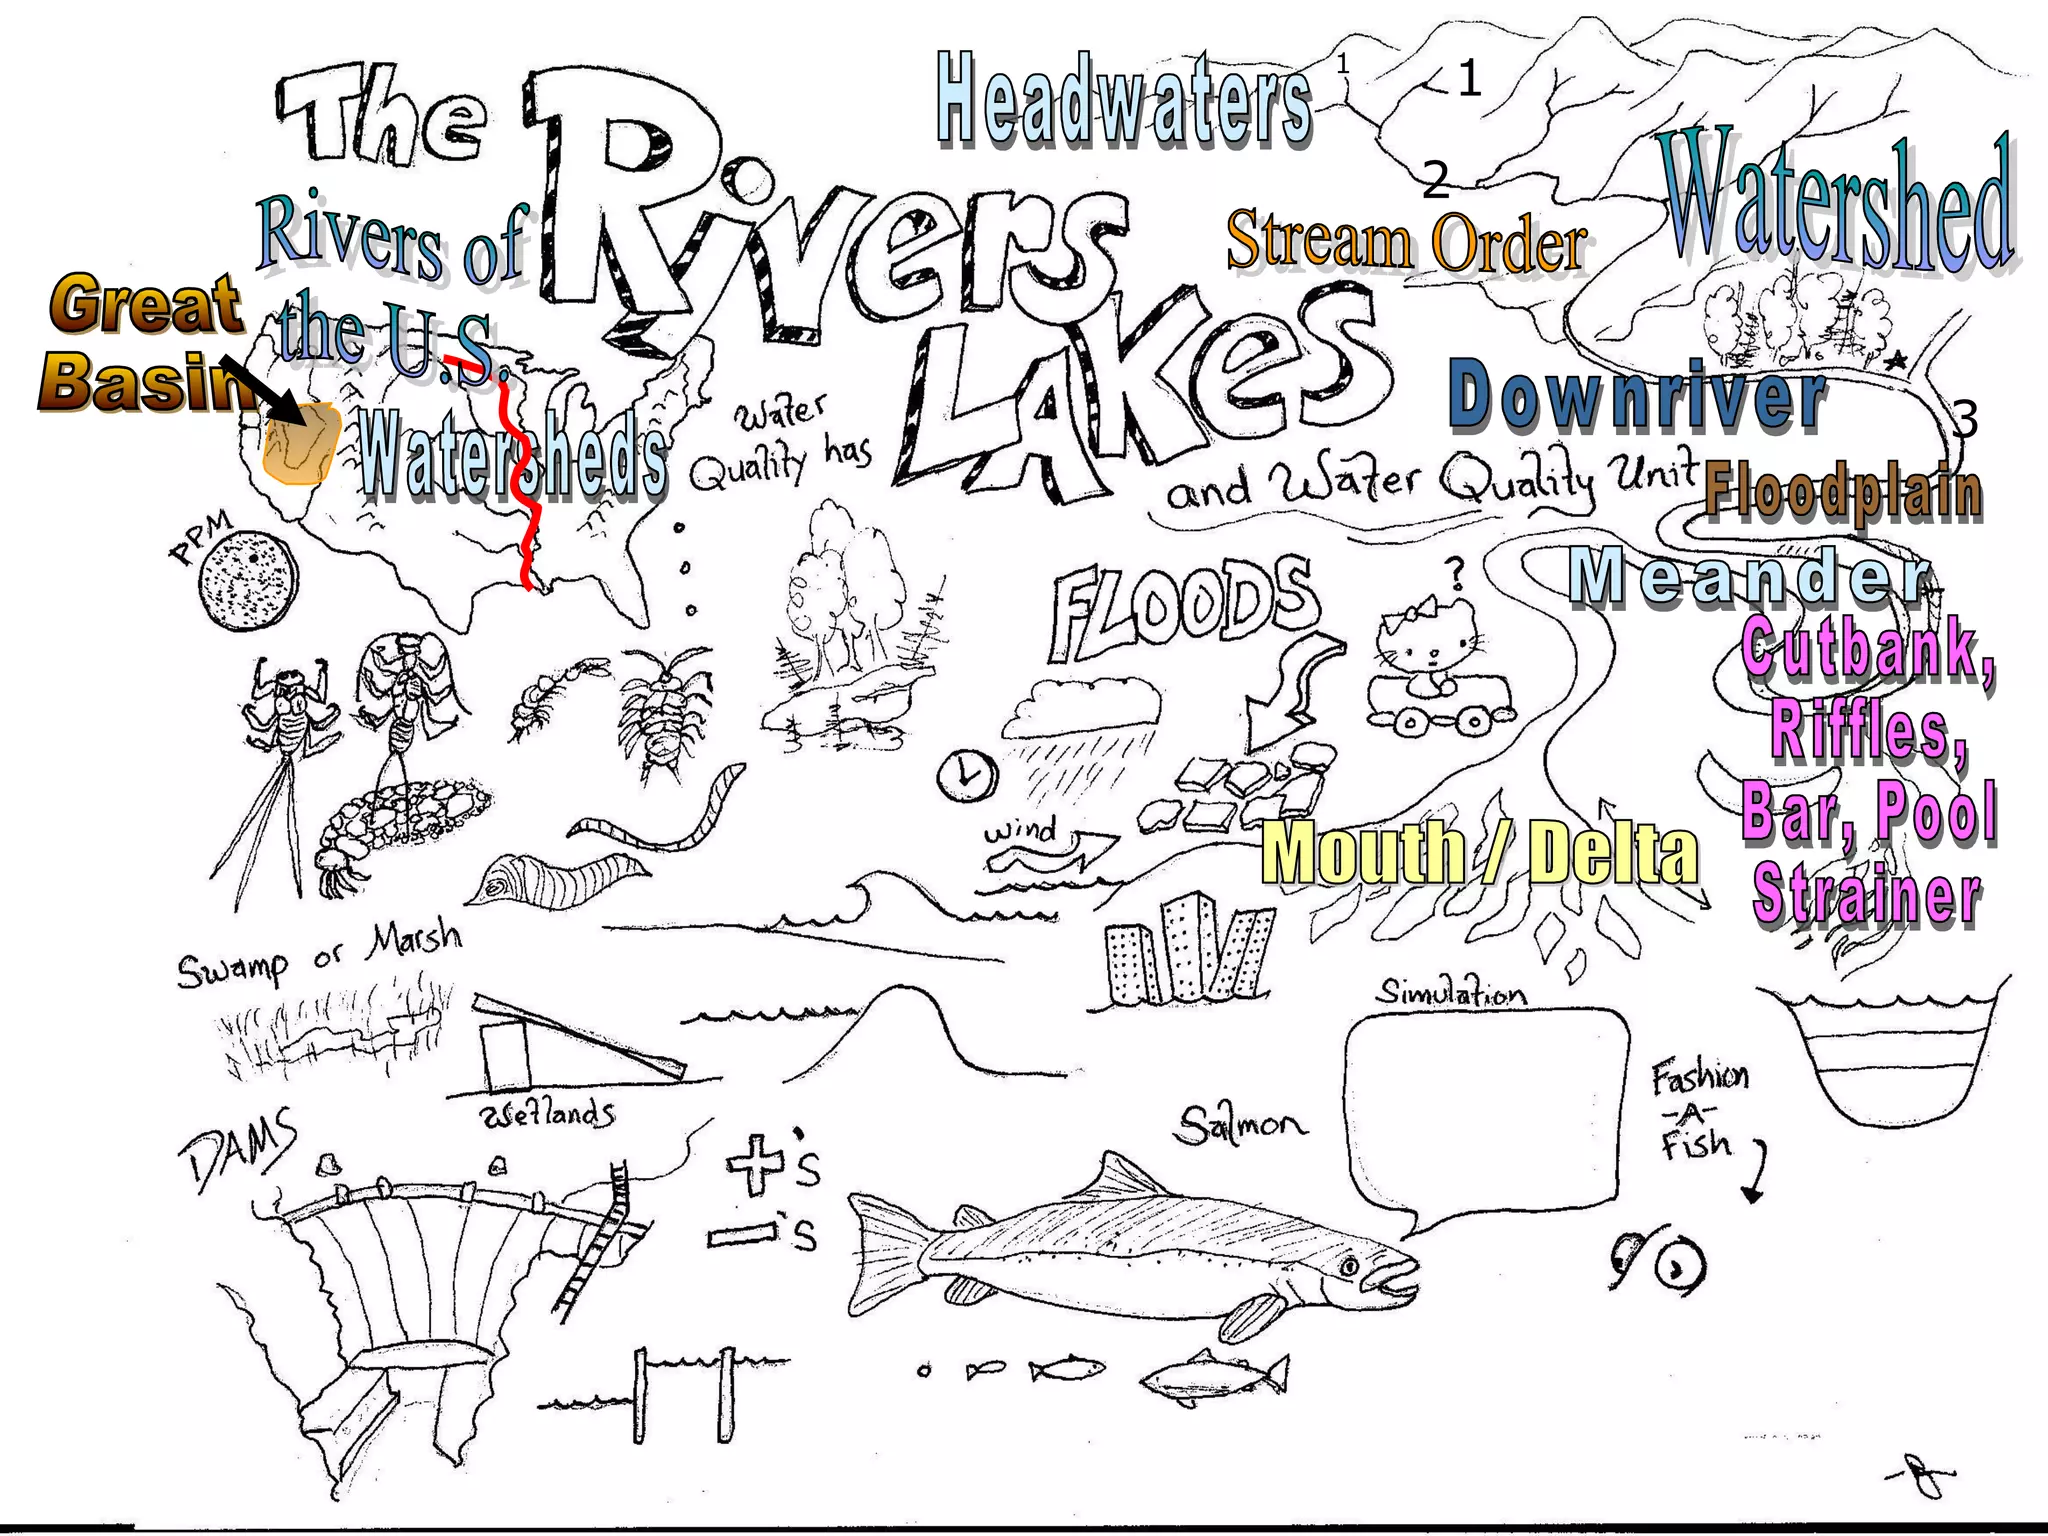 The
Rivers
Lakes
and Water Quality Unit
Headwaters
1
1
2
Stream Order
Watershed
Rivers of
the U.S.
Great
Basin
Watersheds
Water
Quality has
Downriver
3
Floodplain
Meander
Cutbank,
Riffles,
Bar, Pool
Strainer
PPM
FLOODS
?
wind
Mouth / Delta
Swamp or Marsh
Wetlands
Simulation
Fashion
-A-
Fish
Salmon
DAMS
+'s
-'s